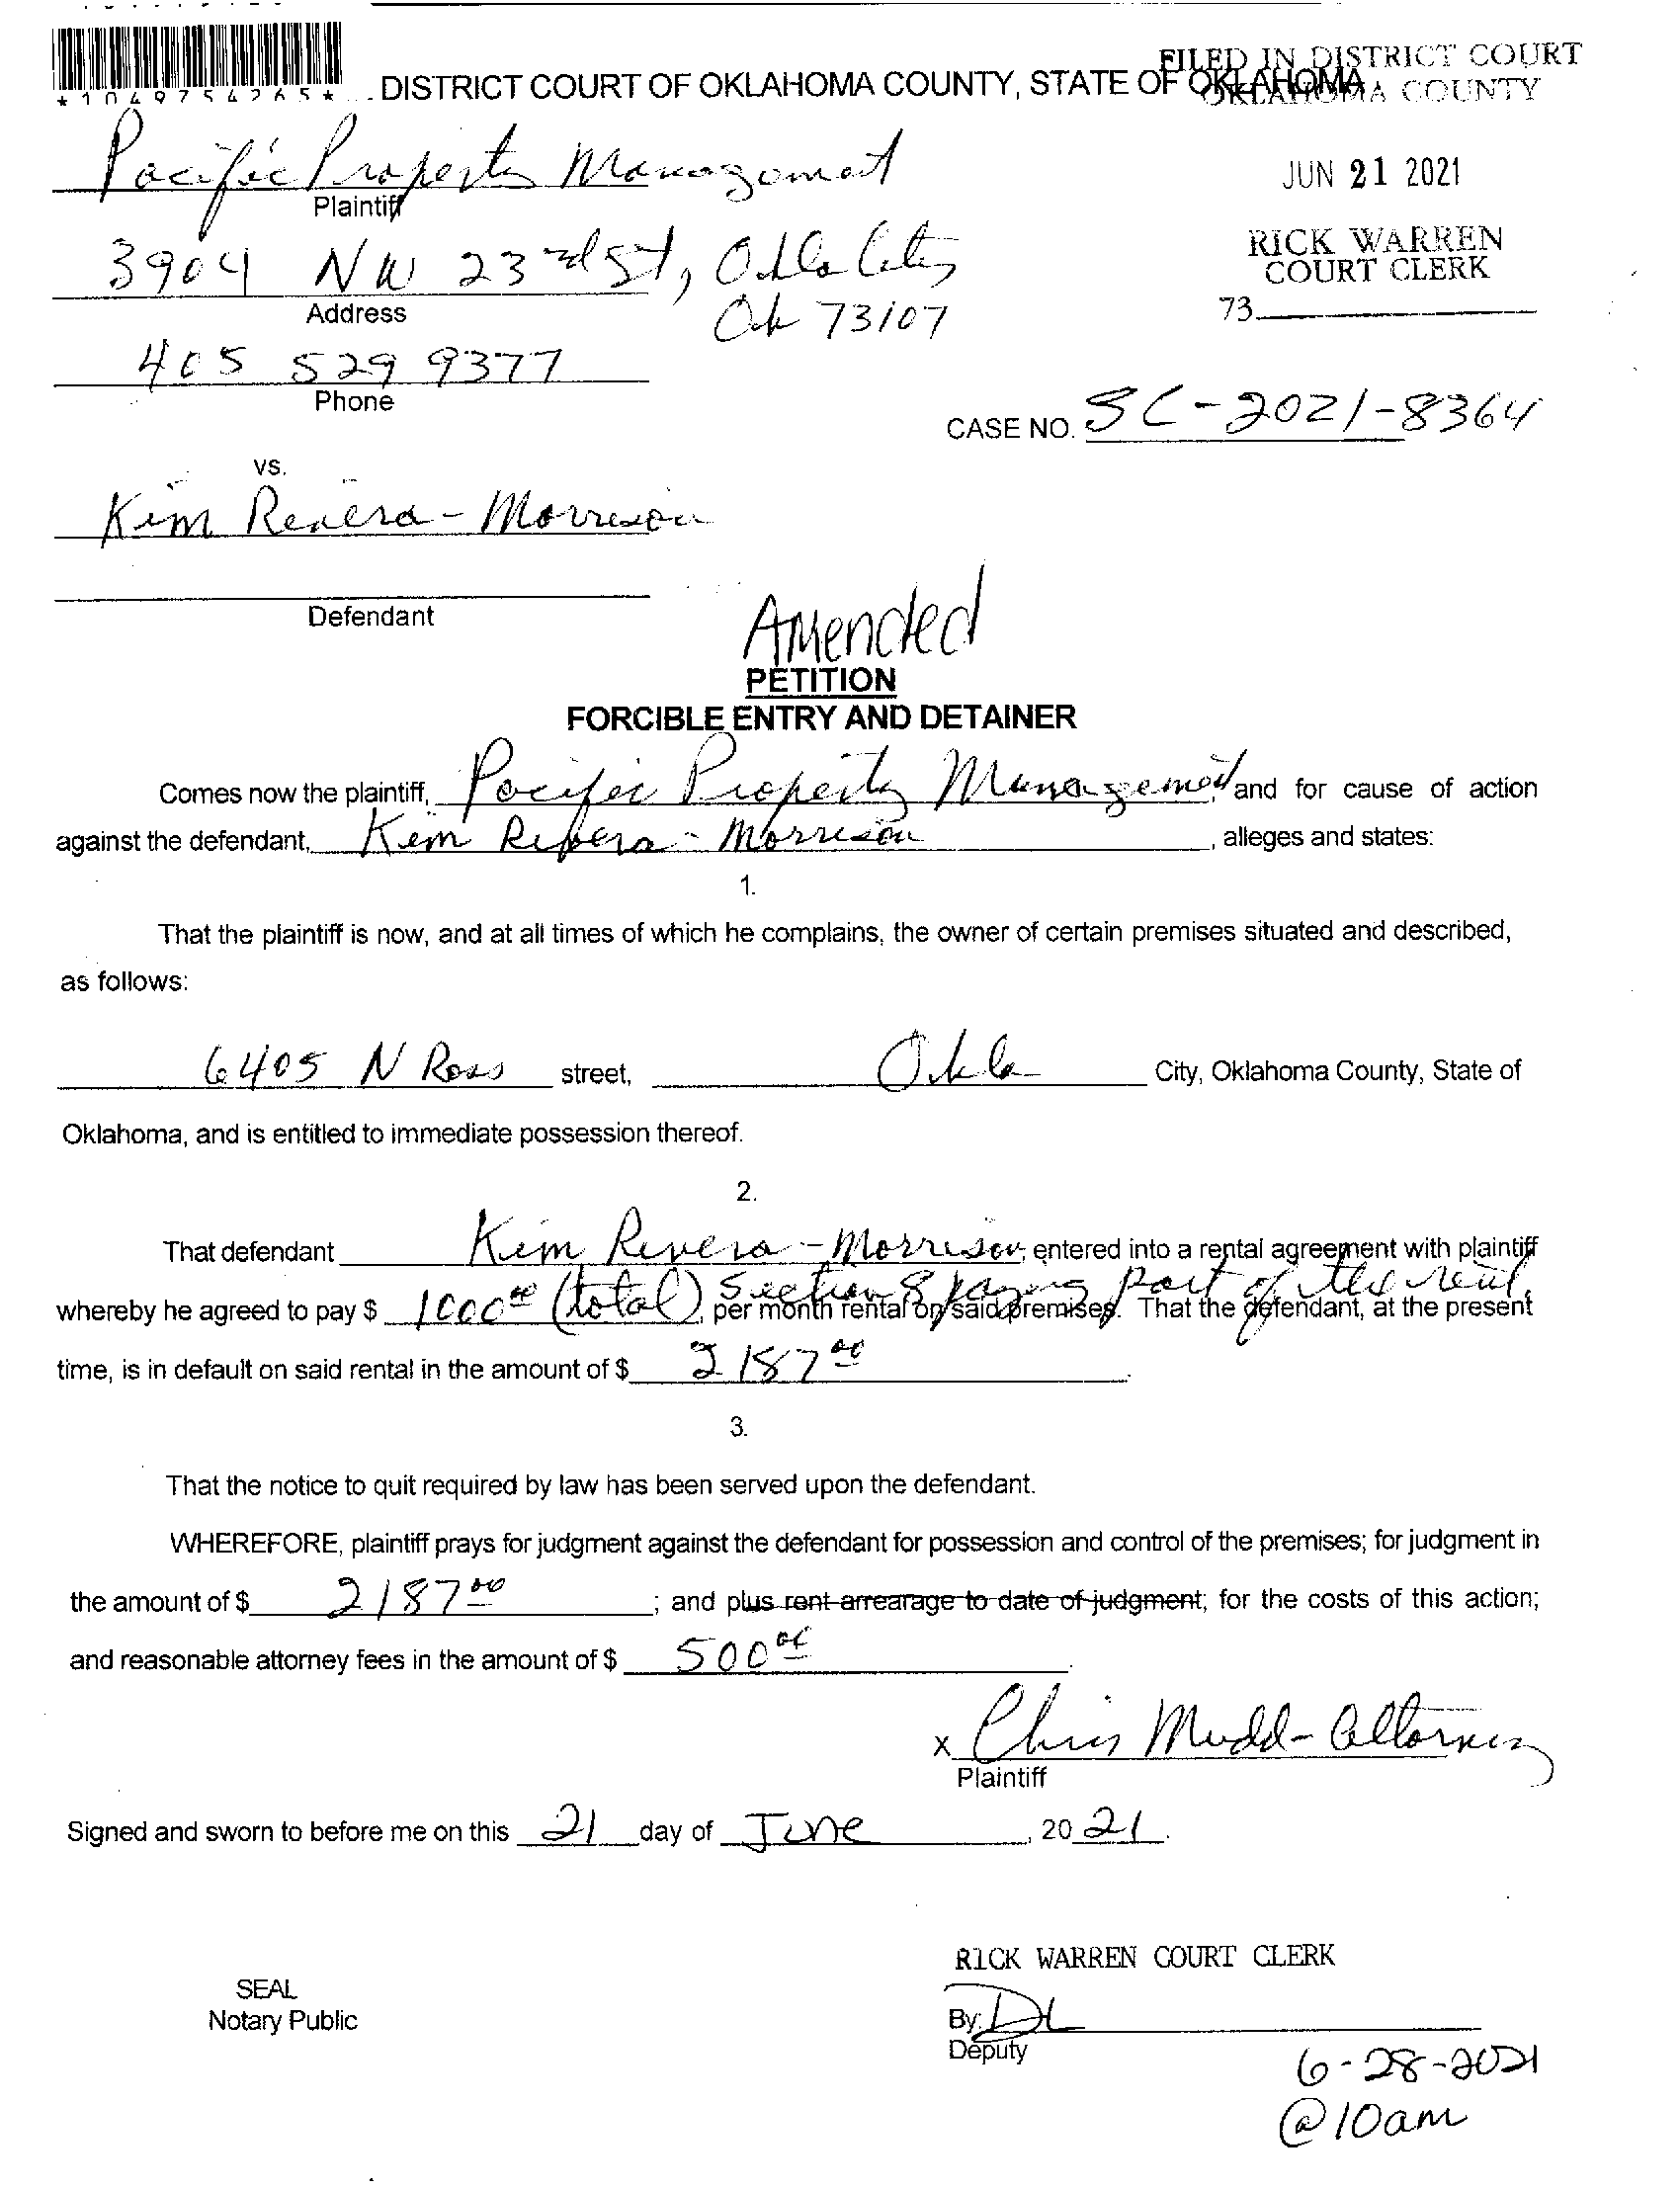 FILED IN DISTRICT COURT
OKLAHOMA COUNTY
*1049754265*
DISTRICT COURT OF OKLAHOMA COUNTY, STATE OF OKLAHOMA
Pacific Property Management
Plaintiff
JUN 21 2021
3904 NW 23rd St, Okla City
Ok 73107
Address
RICK WARREN
COURT CLERK
73
405 529 9377
Phone
CASE NO. SC-2021-8364
vs.
Kim Rivera-Morrison
Defendant
Amended
PETITION
FORCIBLE ENTRY AND DETAINER
Comes now the plaintiff, Pacific Property Management, and for cause of action
against the defendant, Kim Rivera-Morrison, alleges and states:
1.
That the plaintiff is now, and at all times of which he complains, the owner of certain premises situated and described,
as follows:
6405 N Ross street, Okla City, Oklahoma County, State of
Oklahoma, and is entitled to immediate possession thereof.
2.
That defendant Kim Rivera-Morrison, entered into a rental agreement with plaintiff
Section 8 paying part of the rent.
whereby he agreed to pay $ 1000 00 (total), per month rental on said premises. That the defendant, at the present
time, is in default on said rental in the amount of $ 2187 00.
3.
That the notice to quit required by law has been served upon the defendant.
WHEREFORE, plaintiff prays for judgment against the defendant for possession and control of the premises; for judgment in
the amount of $ 2187 00; and plus rent arrearage to date of judgment; for the costs of this action;
and reasonable attorney fees in the amount of $ 500 00.
x Chris Mudd - Attorney
Plaintiff
Signed and sworn to before me on this 21 day of June, 20 21.
RICK WARREN COURT CLERK
SEAL
Notary Public
By: DL
Deputy
6-28-2021
@ 10am